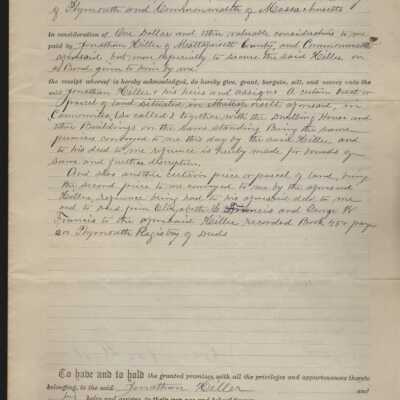 of Plymouth and Commonwealth of Massachusetts
In consideration of One Dollar and other valuable considerations to me
paid by Jonathan Hiller of Mattapoisett County, and Commonwealth
aforesaid but more especially to secure the said Hiller on
a Bond given to him by me
the receipt whereof is hereby acknowledged, do hereby give, grant, bargain, sell, and convey unto the
said Jonathan Hiller & his heirs and assigns A certain tract or
parcel of land situated in aforesaid, in
Cannonville, (so called) together with the Dwelling House and
other Buildings on the same standing Being the same
premises conveyed to me this day by the said Hiller, and
to his deed to me reference is hereby made for bounds of
same and further description.
And also another certain piece or parcel of land, being
the second piece to me conveyed to me by the aforesaid
Hiller, reference being had to his aforesaid deed to me
and to deed from Elizabeth Francis and George
Francis to the aforesaid Hiller recorded Book page
in Plymouth Registry of Deeds
To have and to hold the granted premises, with all the privileges and appurtenances thereto
belonging, to the said Jonathan Hiller and
his heirs and assigns, to their own use and behoof forever.